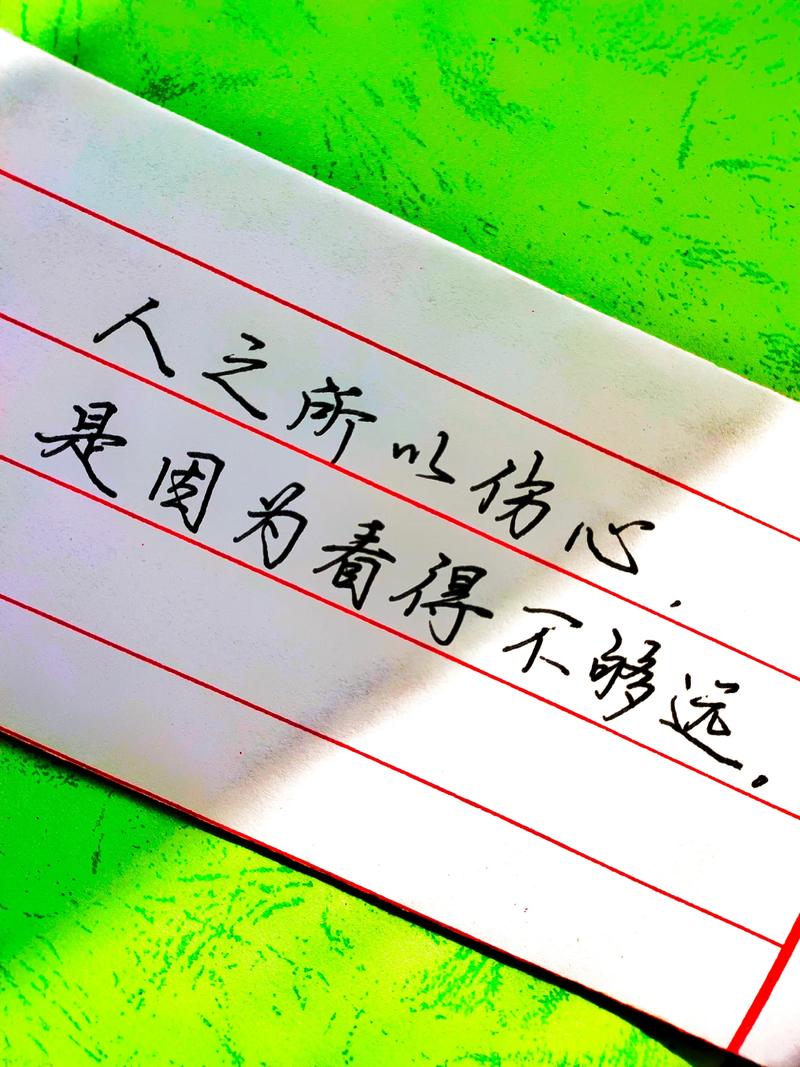 人之所以伤心,
是因为看得不够远.